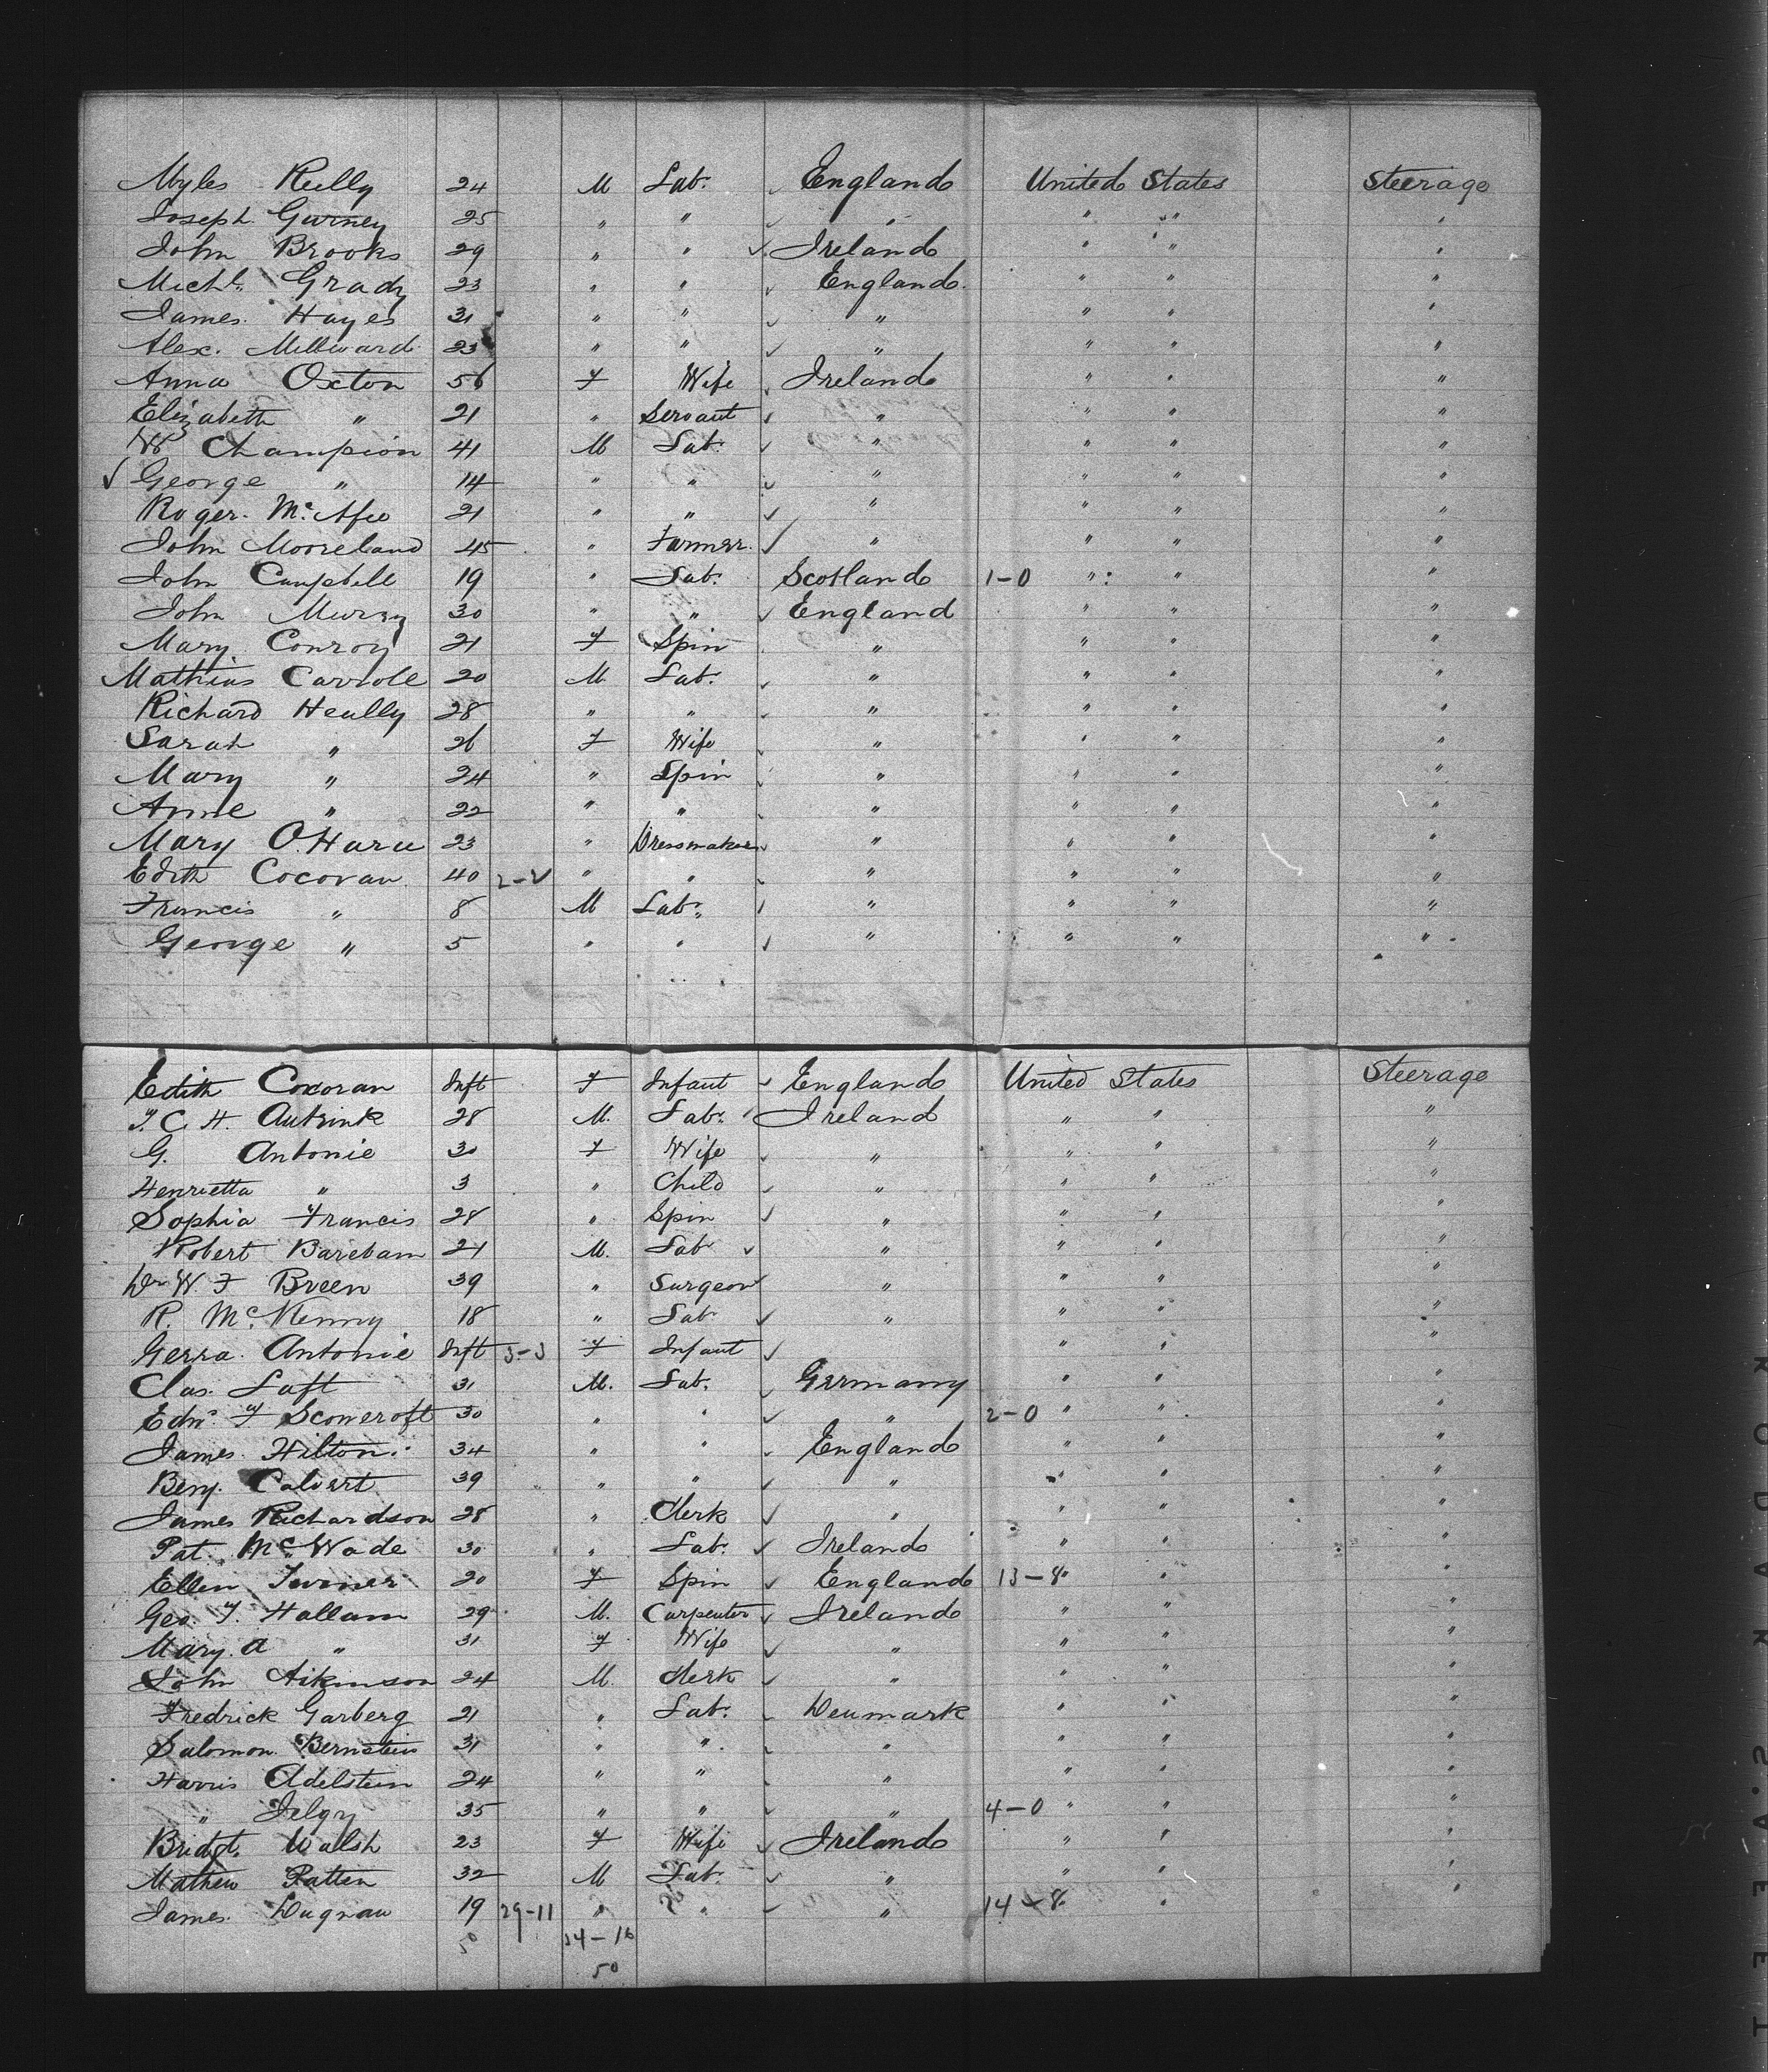 Myles Reilly 24 M Lab. England United States Steerage
Joseph Gurney 25 " " " " " "
John Brooks 29 " " Ireland " " "
Michl. Grady 23 " " England " " "
James Hayes 31 " " " " " "
Alex. Millward 23 " " " " " "
Anna Oxton 56 F Wife Ireland " " "
Elizabeth " 21 " Servant " " " "
W Champion 41 M Lab. " " " "
George " 14 " " " " " "
Roger McAfee 21 " " " " " "
John Mooreland 45 " Farmer " " " "
John Campbell 19 " Lab. Scotland 1-0 " " "
John Murray 30 " " England " " "
Mary Conroy 21 F Spin " " " "
Mathias Carroll 20 M Lab. " " " "
Richard Heally 28 " " " " " "
Sarah " 26 F Wife " " " "
Mary " 24 " Spin " " " "
Anne " 22 " " " " " "
Mary O.Hara 23 " Dressmaker " " " "
Edith Cocoran 40 2-2 " " " " " "
Francis " 8 M Lab. " " " "
George " 5 " " " " " "
Edith Cocoran Inft F Infant England United States Steerage
28 M. Lab. Ireland " " "
G. Antonie 30 F Wife " " " "
Henrietta " 3 " Child " " " "
Sophia Francis 28 " Spin " " " "
Robert Barebam 21 M. Lab " " " "
Dr W. F Breen 39 " Surgeon " " " "
R. McKenny 18 " Lab " " " "
Gerra Antonie Inft 3-3 F Infant " " "
Clas. Laft 31 M. Lab. Germany " " "
Edw. F Scowcroft 30 " " " 2-0 " " "
James Hilton 34 " " England " " "
Benj. Calvert 39 " " " " " "
James Richardson 28 " Clerk " " " "
Pat McWade 30 " Lab. Ireland " " "
Ellen Turner 20 F Spin England 13-8 " " "
Geo. T. Hallam 29 M. Carpenter Ireland " " "
Mary. A " 31 F Wife " " " "
John Atkinson 24 M. Clerk " " " "
Fredrick Garberg 21 " Lab. Denmark " " "
Salomon Bernstein 31 " " " " " "
Harris Adelstein 24 " " " " " "
" 35 " " " 4-0 " " "
Bridgt. Walsh 23 F Wife Ireland " " "
Mathew Patten 32 M Lab. " " " "
James Dugnan 19 29-11 " " " 14-8 " "
50 34-16
50